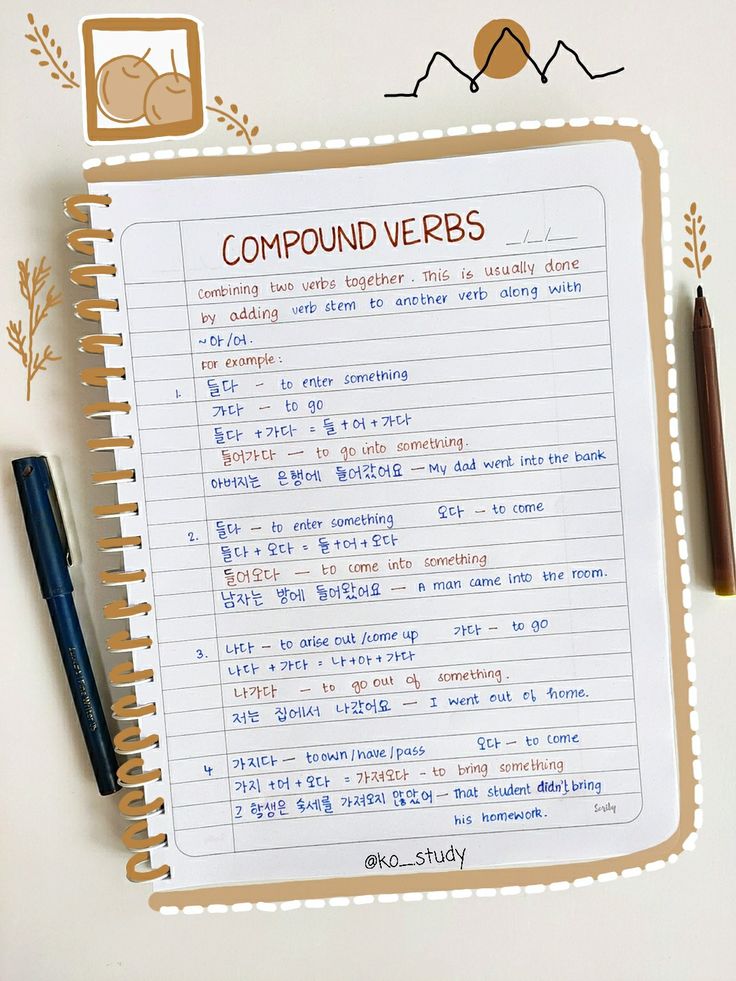 COMPOUND VERBS _/_/__
Combining two verbs together. This is usually done
by adding verb stem to another verb along with
~아/어.
For example:
1. 들다 - to enter something
가다 - to go
들다 + 가다 = 들 + 어 + 가다
들어가다 — to go into something.
아버지는 은행에 들어갔어요 — My dad went into the bank
2. 들다 — to enter something 오다 - to come
들다 + 오다 = 들 + 어 + 오다
들어오다 — to come into something
남자는 방에 들어왔어요 — A man came into the room.
3. 나다 - to arise out /come up 가다 - to go
나다 + 가다 = 나 + 아 + 가다
나가다 - to go out of something.
저는 집에서 나갔어요 — I went out of home.
4 가지다 — to own/have/pass 오다 — to come
가지 + 어 + 오다 = 가져오다 - to bring something
그 학생은 숙세를 가져오지 않았어 — That student didn't bring
his homework.
@ko_study